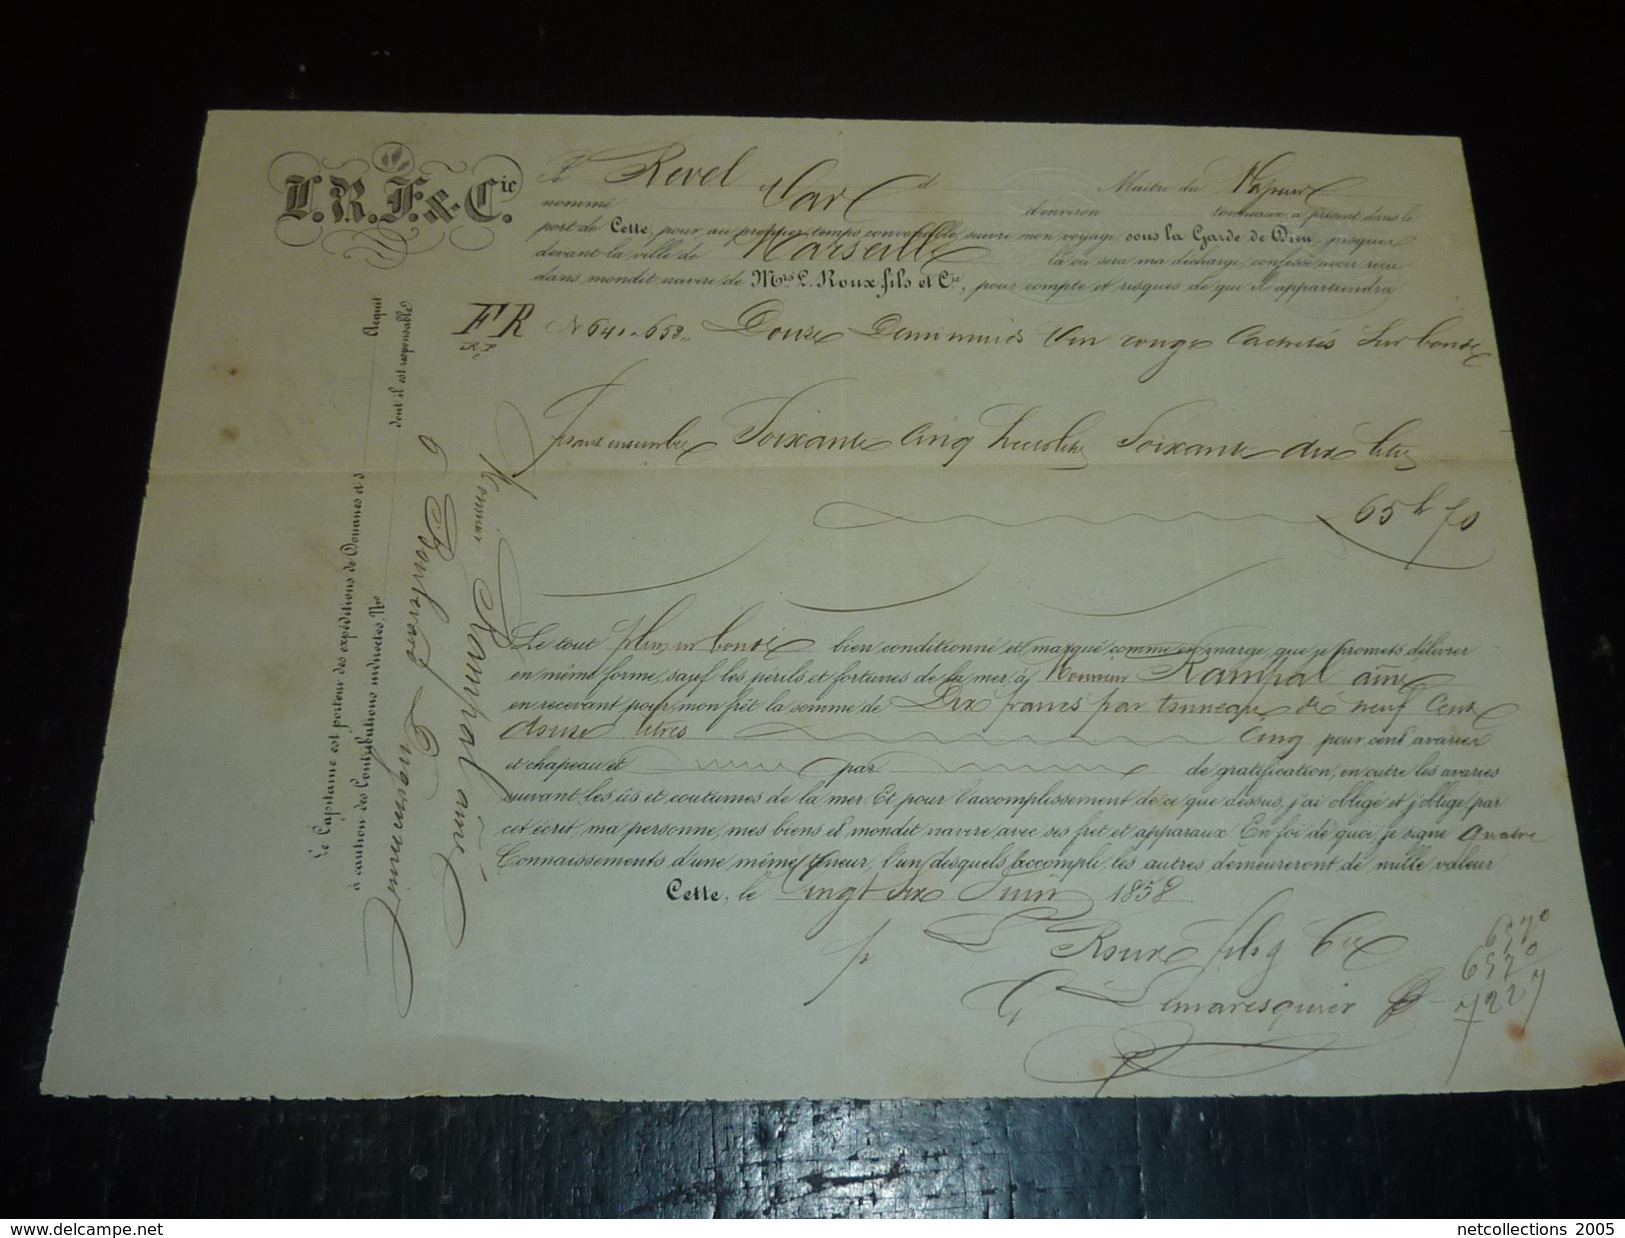 L. R. F. & C.ie
Revel Maître du Vapeur
nommé Var d'environ tonneaux, à présent dans le
port de Cette, pour au premier temps convenable, suivre mon voyage, sous la Garde de Dieu, jusques
devant la ville de Marseille là où sera ma décharge, confesse avoir reçu
dans mondit navire de Mrs L. Roux fils et Cie, pour compte et risques de qui il appartiendra
FR N 641 à 652 Douze Demi muids Vin rouge Cachetés Sur bonde
Jeaune ensemble Soixante Cinq hectolitres Soixante dix litres
65h 70
Le tout bien conditionné et marqué comme en marge, que je promets délivrer
en même forme, sauf les périls et fortunes de la mer, à Monsieur Rampal aîné
en recevant pour mon frêt la somme de Dix francs par tonneau de neuf Cent
douze litres Cinq pour cent avaries
et chapeau et par de gratification, en outre les avaries
suivant les ûs et coutumes de la mer. Et pour l'accomplissement de ce que dessus, j'ai obligé et j'oblige, par
cet écrit, ma personne, mes biens et mondit navire avec ses fret et apparaux. En foi de quoi, je signe quatre
Connaissements d'une même teneur, l'un desquels accompli, les autres demeureront de nulle valeur
Cette, le Vingt six Juin 1858
p L Roux fils & Cie
Lemaresquier
6570
6570
7227
Le Capitaine est porteur des expéditions de Douanes et d Acquit
à caution des Contributions indirectes, No dont il est responsable
Monsieur Rampal aîné
delcampe.net
netcollections 2005